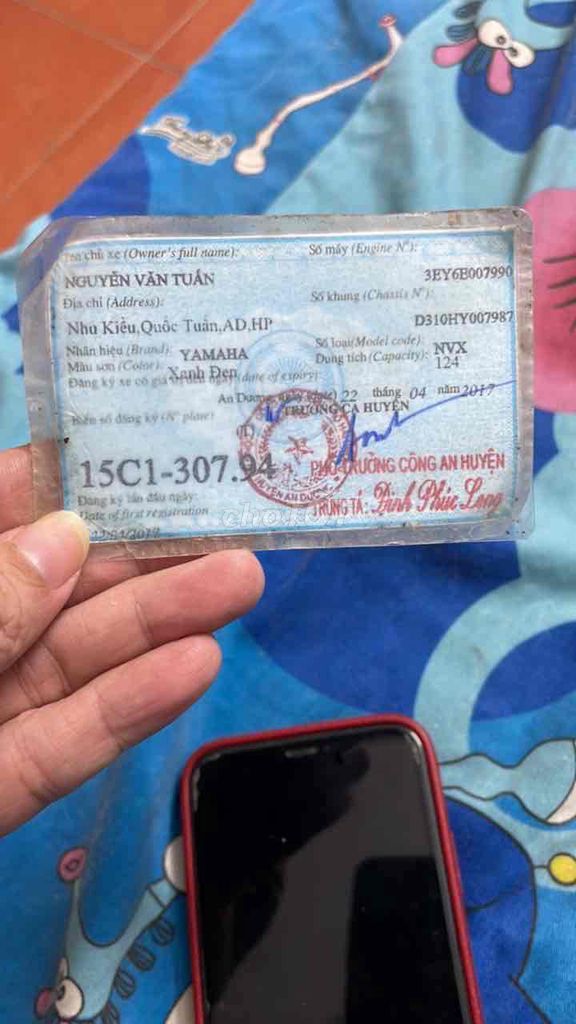 Tên chủ xe (Owner's full name): Số máy (Engine N°):
NGUYỄN VĂN TUẤN 3EY6E007990
Địa chỉ (Address): Số khung (Chassis N°):
Nhu Kiều,Quốc Tuấn,AD,HP D310HY007987
Nhãn hiệu (Brand): YAMAHA Số loại(Model code): NVX
Màu sơn (Color): Xanh Đen Dung tích (Capacity): 124
Đăng ký xe có giá trị đến ngày (date of expiry):
An Dương, ngày (date) 22 tháng 04 năm 2017
Biển số đăng ký (N° plate) TRƯỞNG CA HUYỆN
15C1-307.94 PHÓ TRƯỞNG CÔNG AN HUYỆN
Đăng ký lần đầu ngày: TRUNG TÁ: Đinh Phúc Long
Date of first registration
HUYỆN AN DƯƠNG